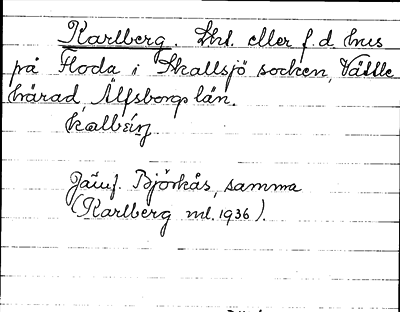 Karlberg. Lht. eller f.d. hus
på Floda i Skallsjö socken, Vättle
härad, Älfsborgs län.
kàlbérj
Jämf. Björkås, samma
(Karlberg ml. 1936).